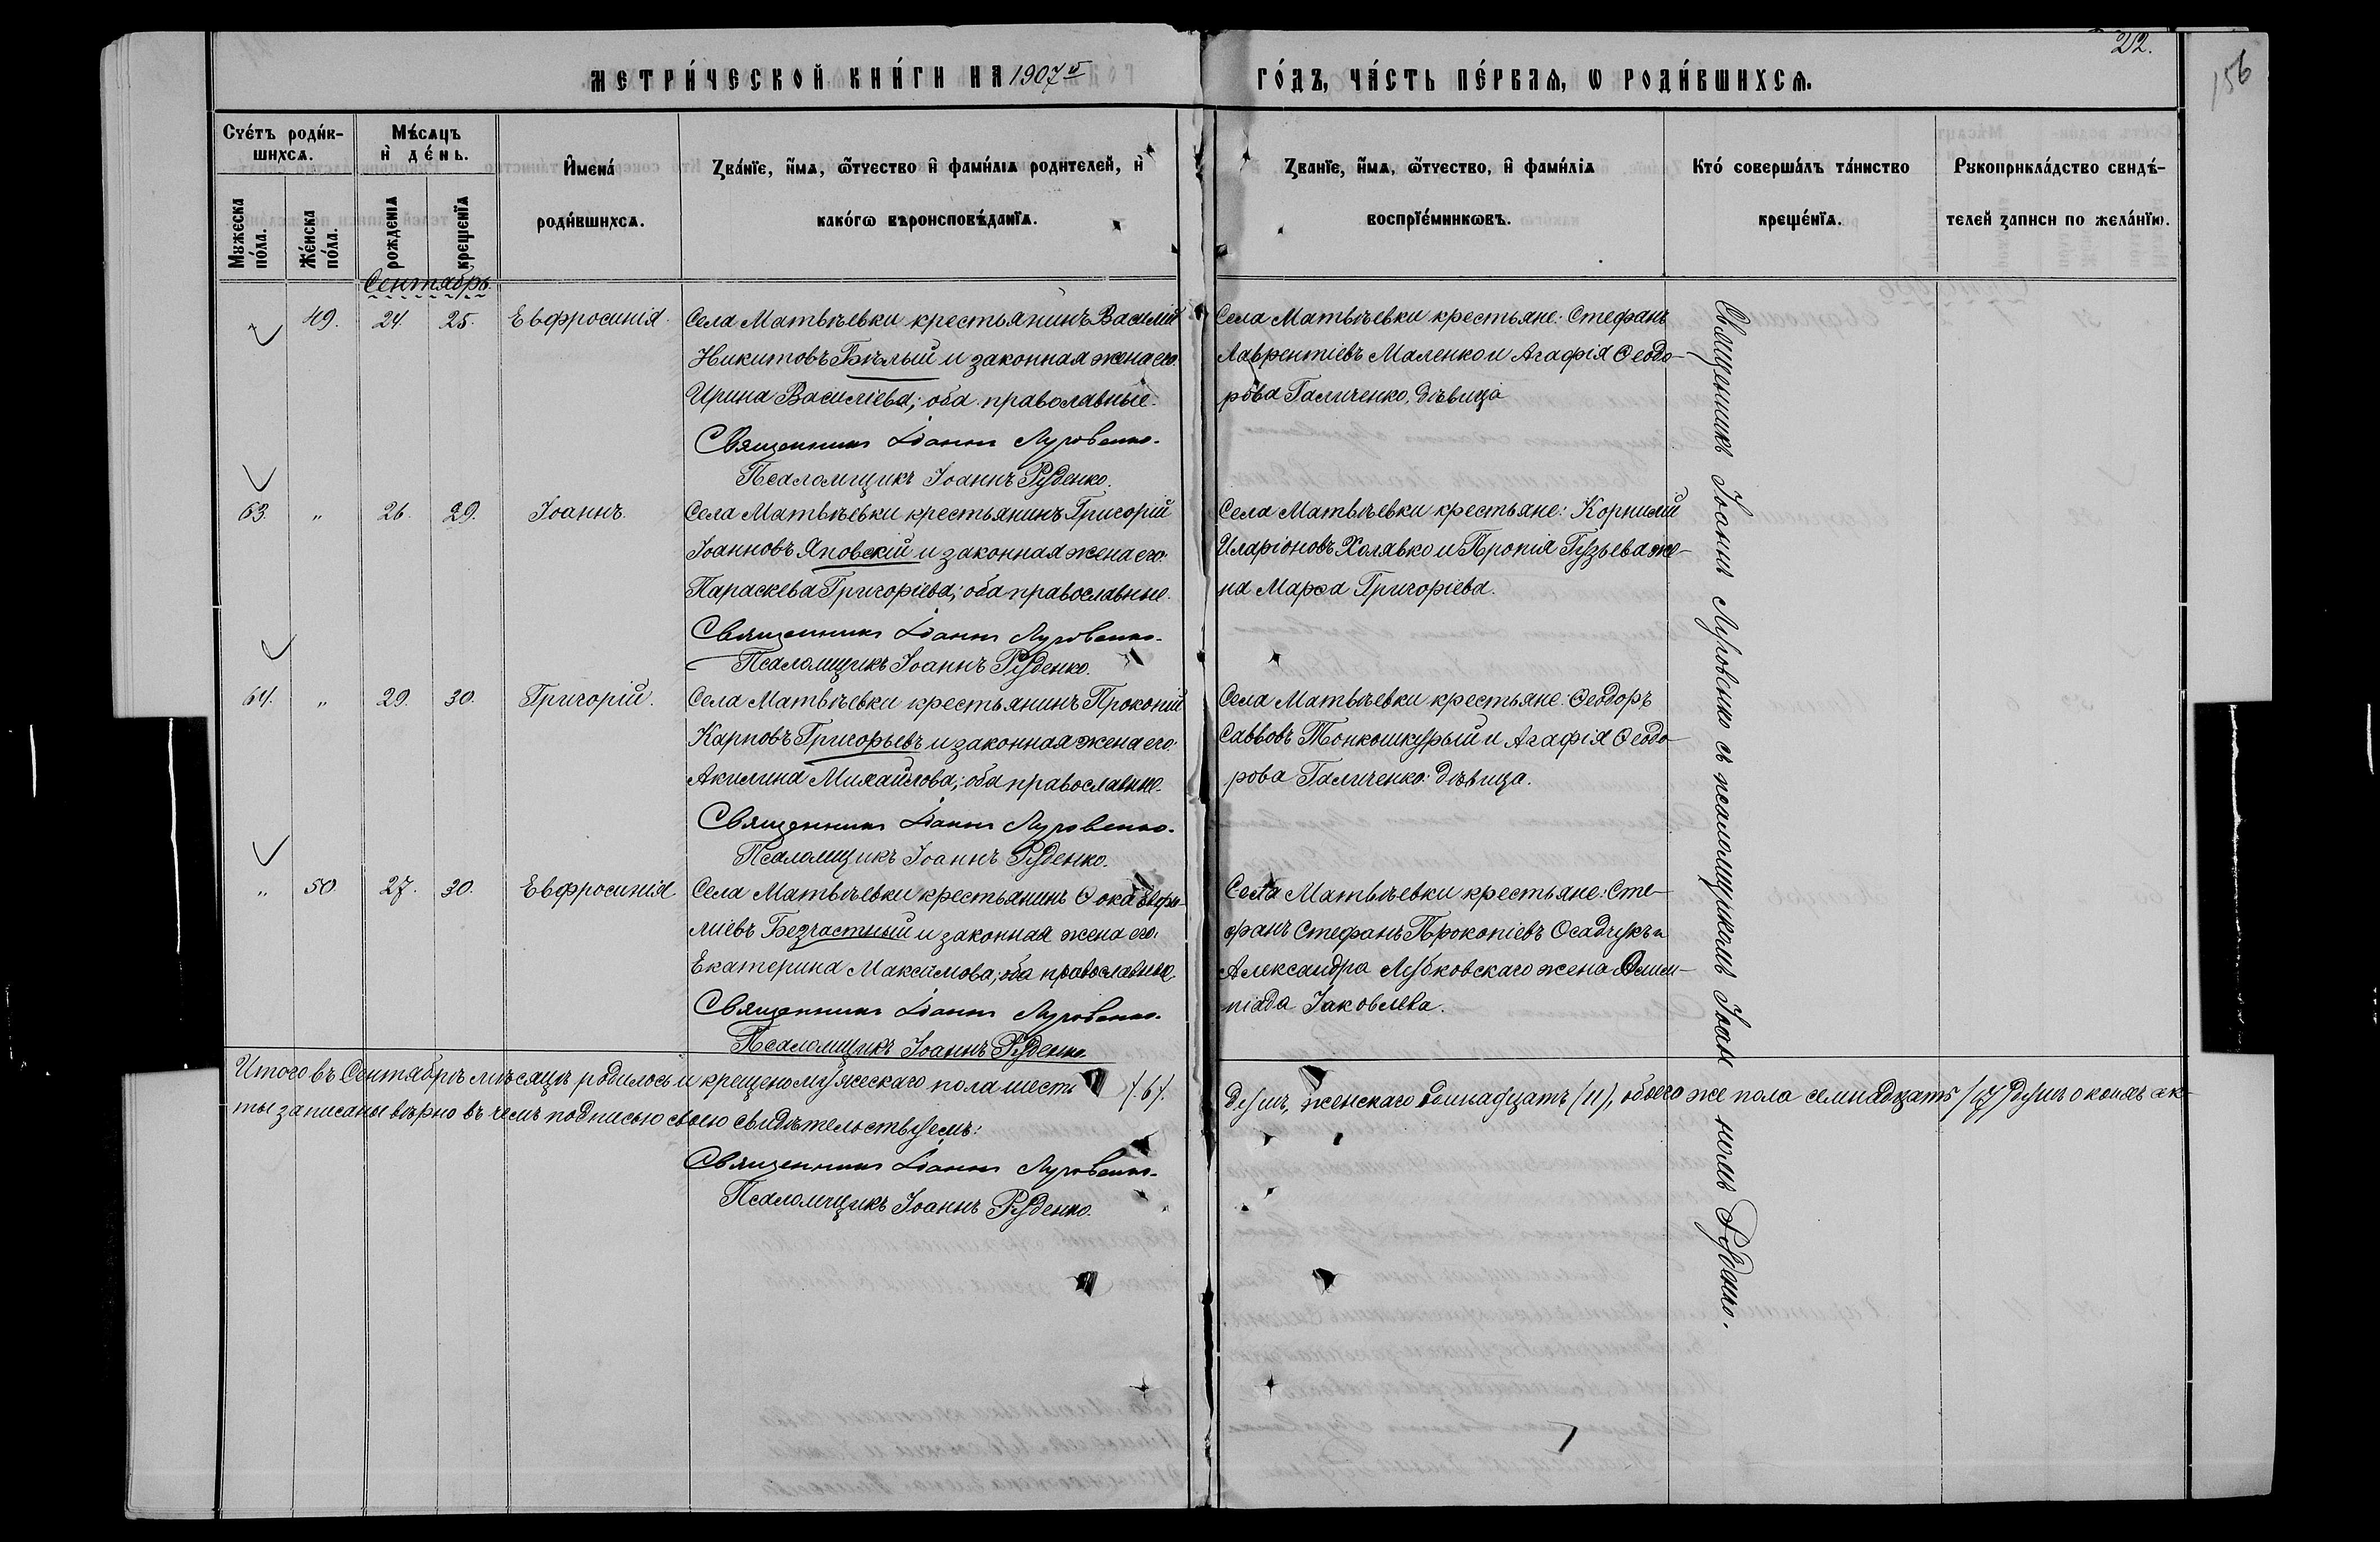 22.
156
МЕТРИ́ЧЕСКОЙ КНИ́ГИ НА 1907й
ГО́ДЪ, ЧА́СТЬ ПЕ́РВАЯ, Ѡ РОДИ́ВШИХСѦ.
Счє́тъ роди́в-
шихсѧ.
Мꙋжеска по́ла.
Же́нска по́ла.
Мѣ́сѧцъ
и҆ де́нь.
рождєнїѧ
крещєнїѧ
И҆мена́
роди́вшихсѧ.
Зва́нїе, и҆́мѧ, ѻ҆́тчество и҆ фами́лїѧ роди́телей, и҆
како́гѡ вѣроисповѣ́данїѧ.
Зва́нїе, и҆́мѧ, ѻ҆́тчество, и҆ фами́лїѧ
воспрїє́мникѡвъ.
Кто́ соверша́лъ та́инство
креще́нїѧ.
Рꙋкоприкла́дство свидѣ́-
телей записи по жела́нїю.
Сентябрь.
49. 24. 25. Евфросинія.
Села Матвѣевки крестьянинъ Василій
Никитовъ Бѣлый и законная жена его
Ирина Василіева; оба православные.
Священникъ Іоаннъ Луговенко.
Псаломщикъ Іоаннъ Руденко.
Села Матвѣевки крестьяне: Стефанъ
Лаврентіевъ Маленко и Агафія Ѳеодо-
рова Галиченко, дѣвица
63. " 26. 29. Іоаннъ.
Села Матвѣевки крестьянинъ Григорій
Іоанновъ Яповскій и законная жена его
Параскева Григоріева; оба православные.
Священникъ Іоаннъ Луговенко.
Псаломщикъ Іоаннъ Руденко.
Села Матвѣевки крестьяне: Корнилій
Иларіоновъ Холявко и Прокія Гузьева же-
на Марѳа Григоріева.
64. " 29. 30. Григорій.
Села Матвѣевки крестьянинъ Прокопій
Карповъ Григорьевъ и законная жена его:
Акилина Михайлова; оба православные.
Священникъ Іоаннъ Луговенко.
Псаломщикъ Іоаннъ Руденко.
Села Матвѣевки крестьяне: Ѳеодоръ
Саввовъ Тонкошкурый и Агафія Ѳеодо-
рова Галиченко: дѣвица.
" 50. 27. 30. Евфросинія
Села Матвѣевки крестьянинъ Ѳока Евфи-
міевъ Безчастный и законная жена его:
Екатерина Максимова; оба православные.
Священникъ Іоаннъ Луговенко.
Псаломщикъ Іоаннъ Руденко.
Села Матвѣевки крестьяне: Сте-
фанъ Стефанъ Прокопіевъ Осадчукъ и
Александра Лубковскаго жена Олим-
піада Іаковлева.
Священникъ Іоаннъ Луговенко съ псаломщикомъ Іоанномъ Руденко.
Итого въ Сентябрѣ мѣсяцѣ родилось и крещено мужескаго пола шесть /.6/.
душъ, женскаго одиннадцать (11), обоего же пола семнадцать /17/ душъ о коихъ ак-
ты записаны вѣрно въ чемъ подписью своею свидѣтельствуемъ:
Священникъ Іоаннъ Луговенко.
Псаломщикъ Іоаннъ Руденко.